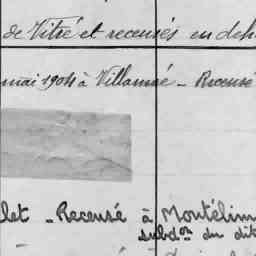 de Vitré et recensés en deh
mai 1904 à Villamée - Recensé
let - Recensé à Montélim
subdon du dit